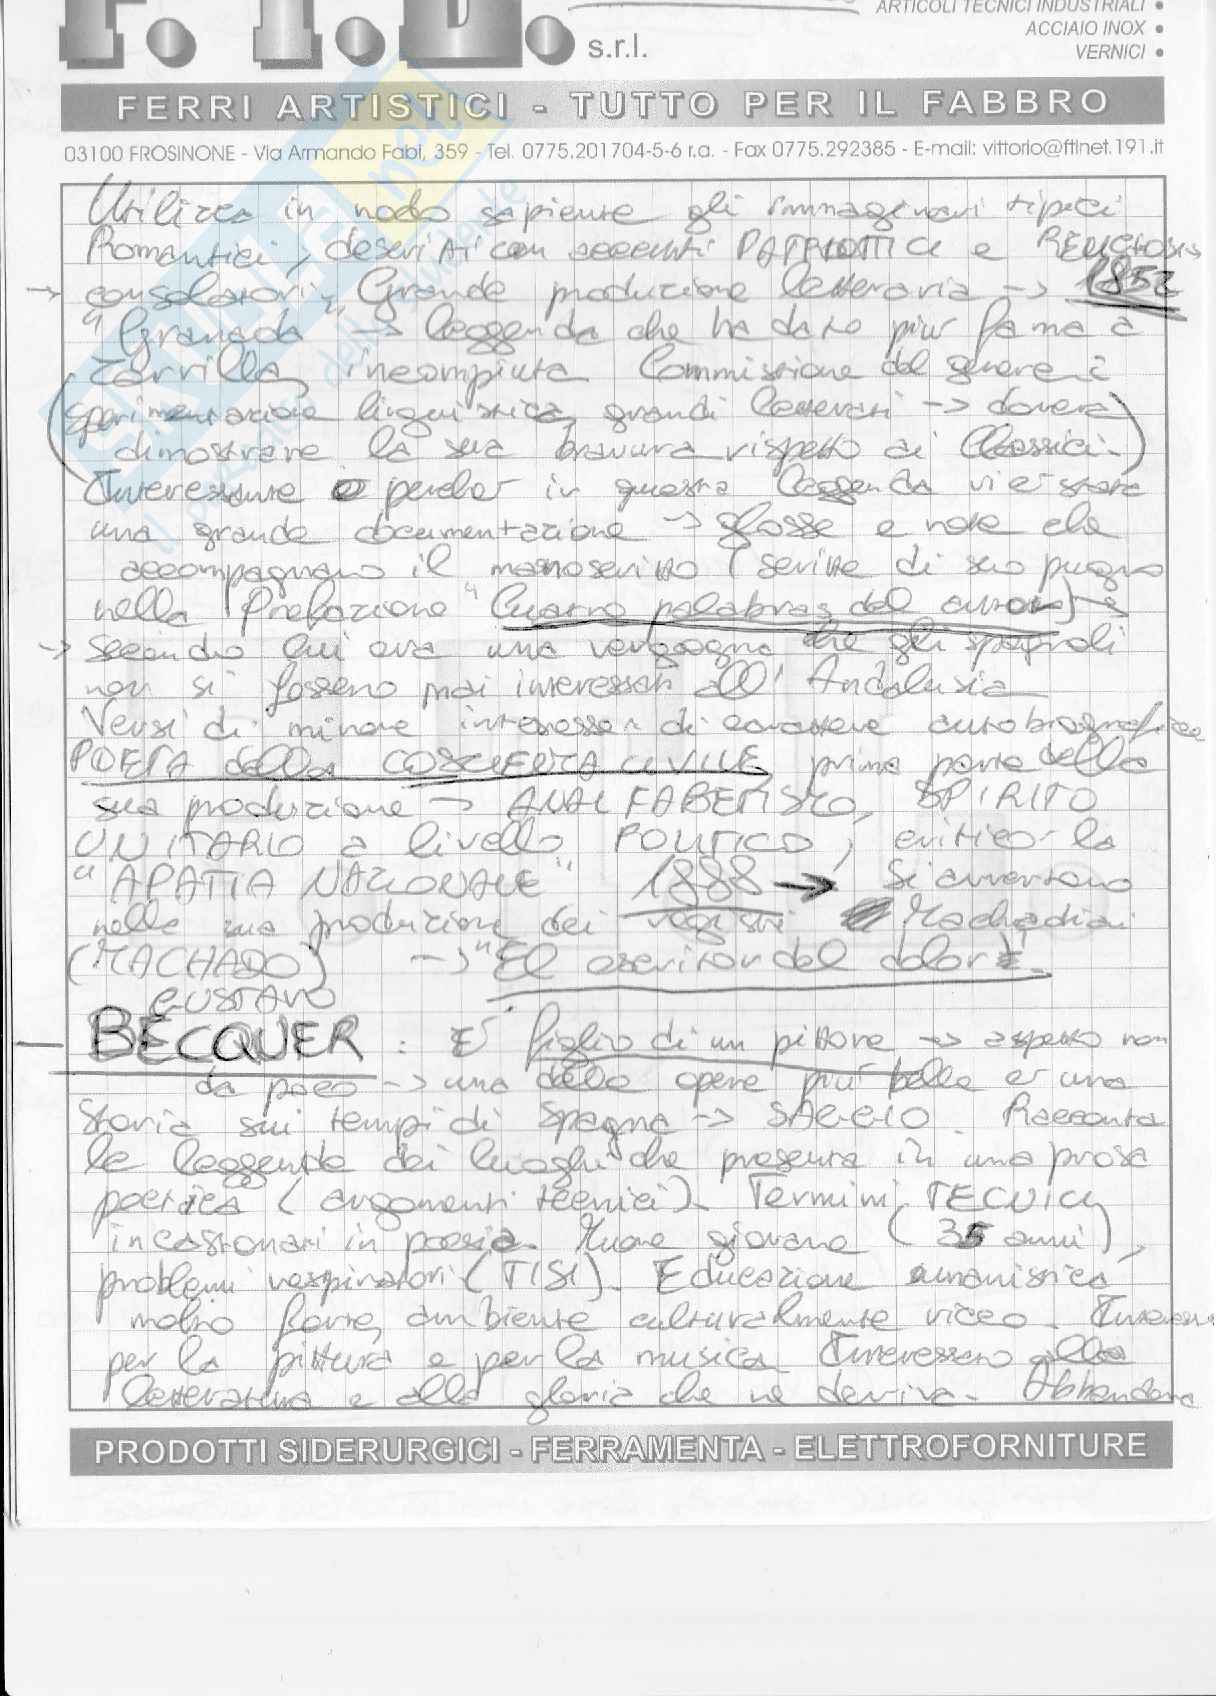 F.T.L. s.r.l.
ARTICOLI TECNICI INDUSTRIALI •
ACCIAIO INOX •
VERNICI •
FERRI ARTISTICI - TUTTO PER IL FABBRO
03100 FROSINONE - Via Armando Fabi, 359 - Tel. 0775.201704-5-6 r.a. - Fax 0775.292385 - E-mail: vittorio@ftlnet.191.it
Utilizza in modo sapiente gli immaginari tipici
Romantici, descritti con accenti PATRIOTTICI e RELIGIOSI
→ consolatori, Grande produzione letteraria → 1852
"Granada" → leggenda che ha dato più fama a
Zorrilla, incompiuta Commissione del genere è
(sperimentazione linguistica, grandi letterati → doveva
dimostrare la sua bravura rispetto ai Classici.)
Interessante perché in questa leggenda vi è stata
una grande documentazione → glosse e note che
accompagnano il manoscritto (scritte di suo pugno
nella Prefazione "Cuatro palabras del autor")
→ secondo lui era una vergogna che gli spagnoli
non si fossero mai interessati all'Andalusia
Versi di minore interesse di carattere autobiografico
POETA della COSCIENZA CIVILE, prima parte della
sua produzione → ANALFABETISMO, SPIRITO
UNITARIO a livello POLITICO, critica la
"APATIA NAZIONALE" 1888 → Si avvertono
nella sua produzione dei registri Machadiani
(MACHADO) → "El escritor del dolor".
GUSTAVO
BÉCQUER : È figlio di un pittore → aspetto non
da poco → una delle opere più belle è una
Storia sui tempi di Spagna → SAGGIO. Racconta
le leggende dei luoghi che presenta in una prosa
poetica (argomenti tecnici). Termini TECNICI
incastonati in poesia. Muore giovane (35 anni),
problemi respiratori (TISI). Educazione umanistica
molto forte, ambiente culturalmente ricco.
per la pittura e per la musica Interessato alla
letteratura e alla gloria che ne deriva. Abbandona
PRODOTTI SIDERURGICI - FERRAMENTA - ELETTROFORNITURE